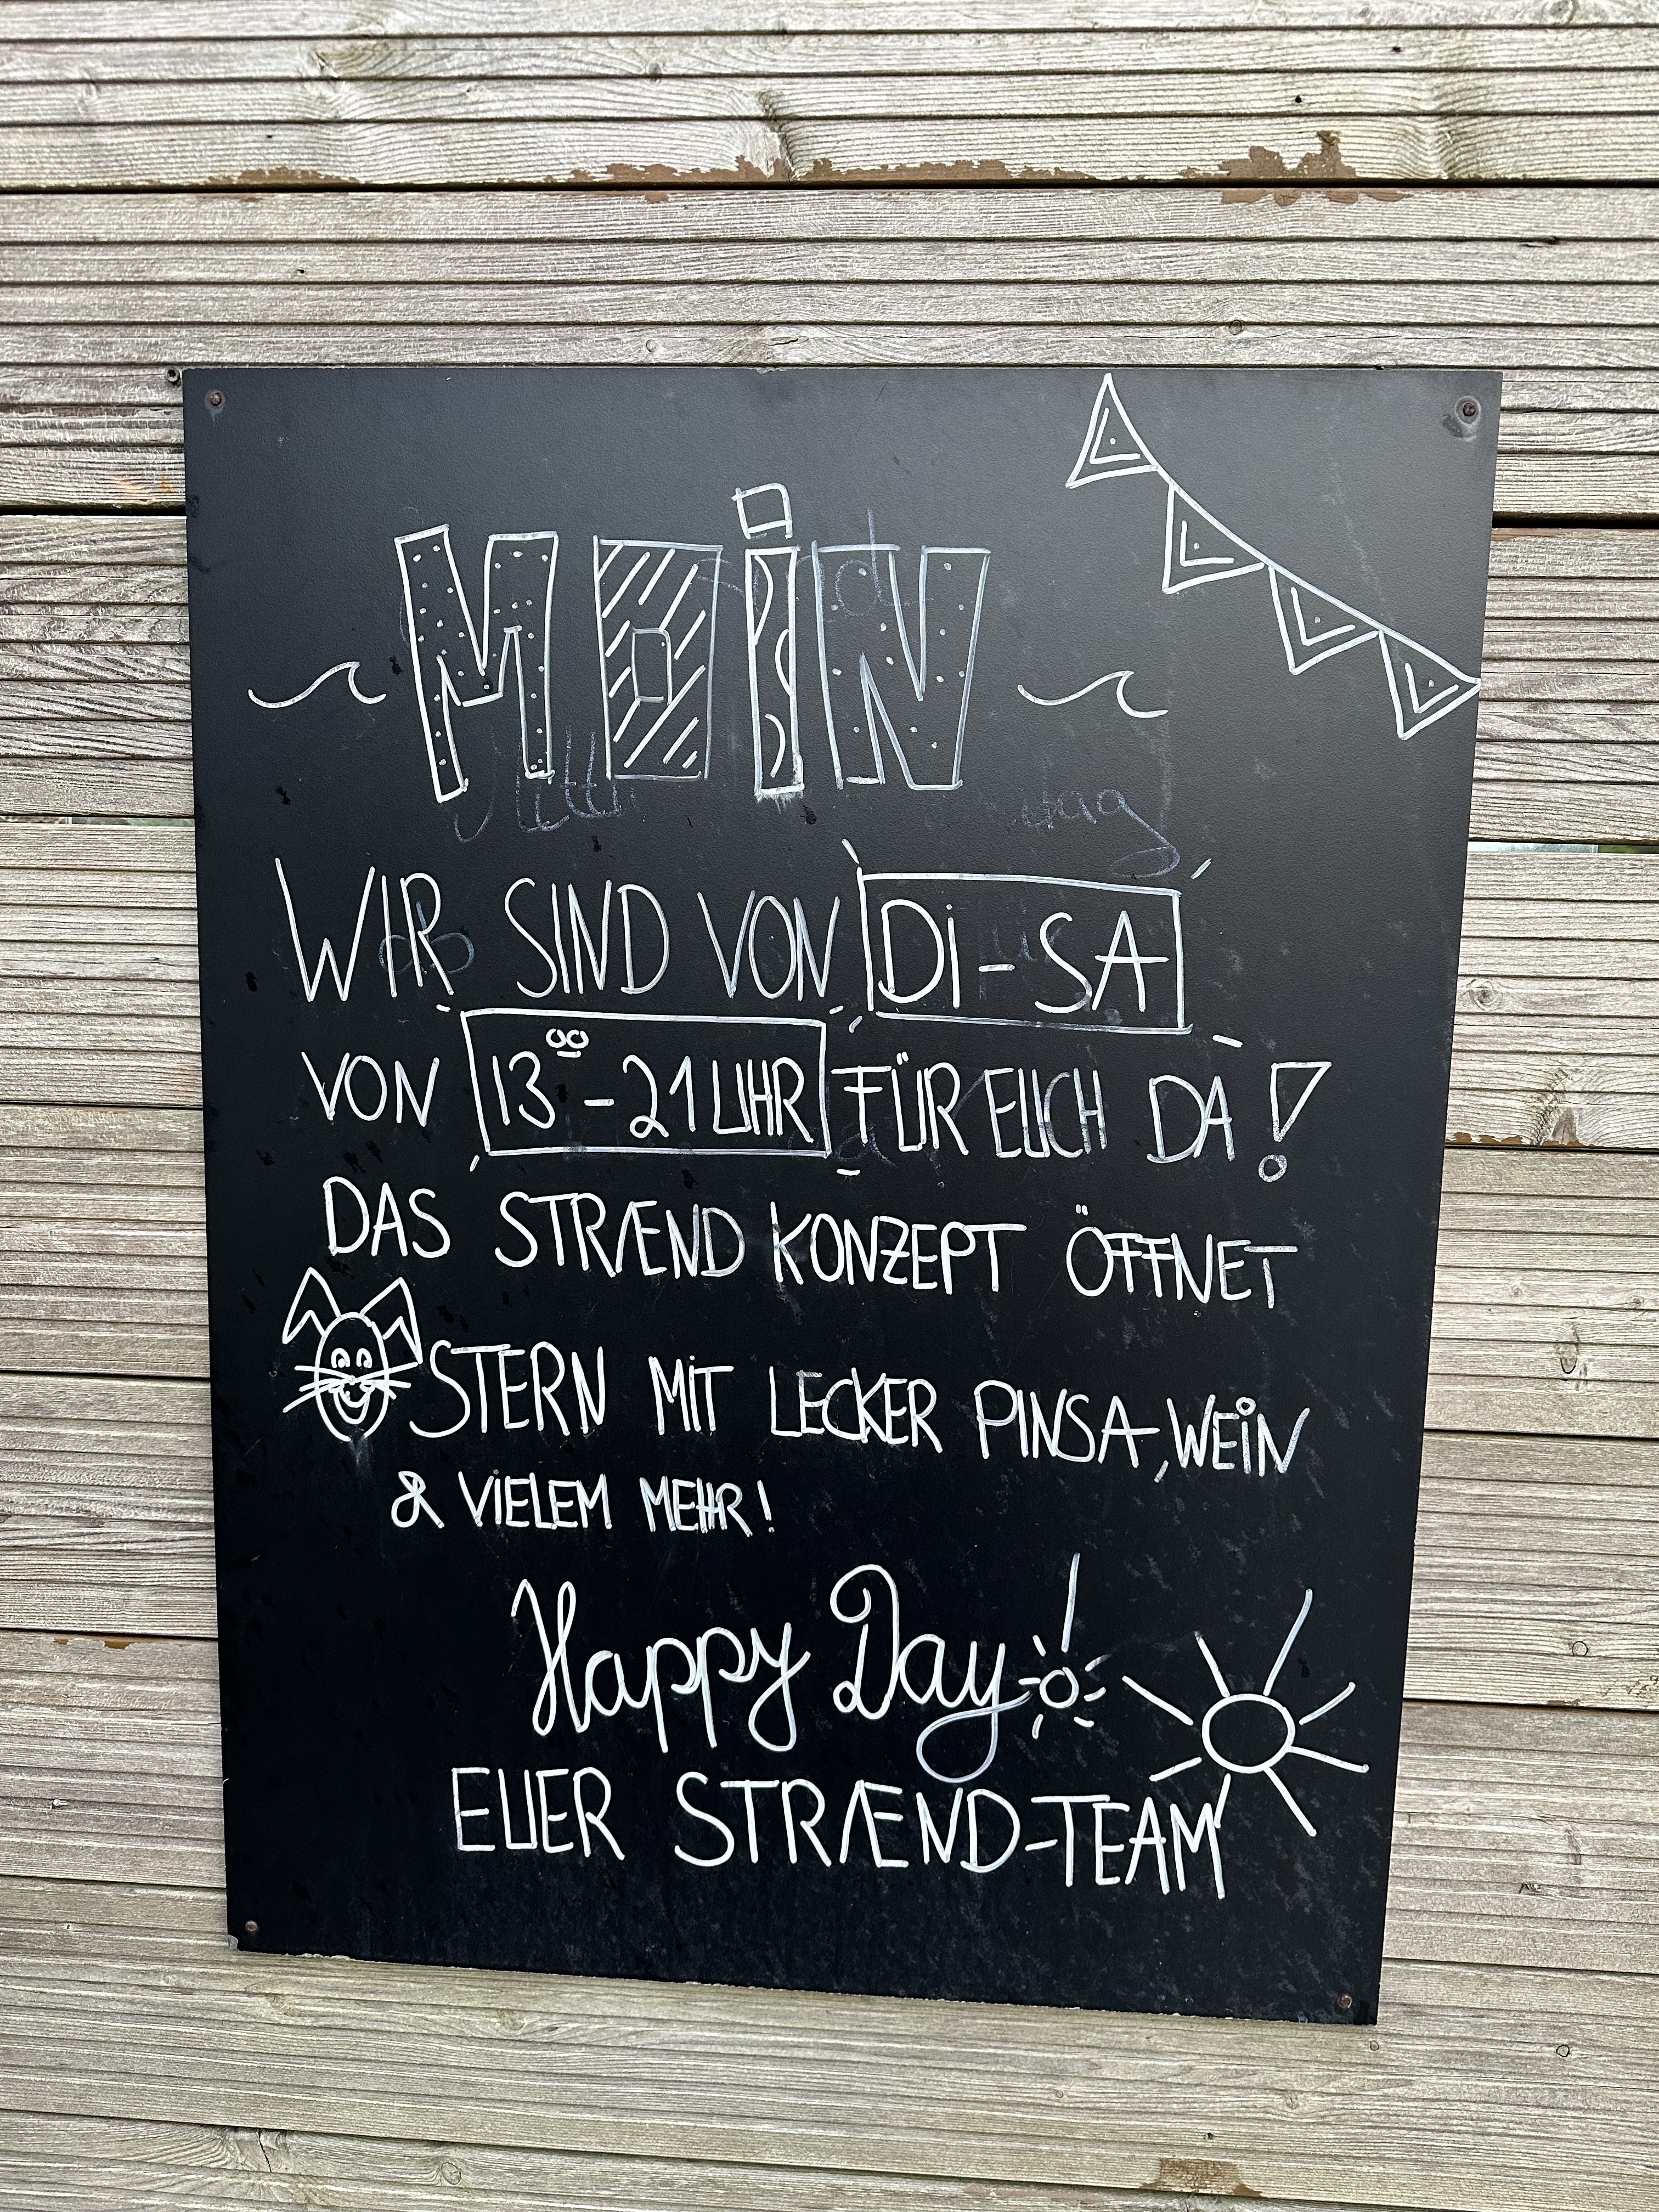 MOiN
WIR SIND VON Di-SA
VON 13⁰⁰-21UHR FÜR EUCH DA!
DAS STRÆND KONZEPT ÖFFNET
OSTERN MiT LECKER PINSA, WEiN
& ViELEM MEHR!
Happy Day
EUER STRÆND-TEAM